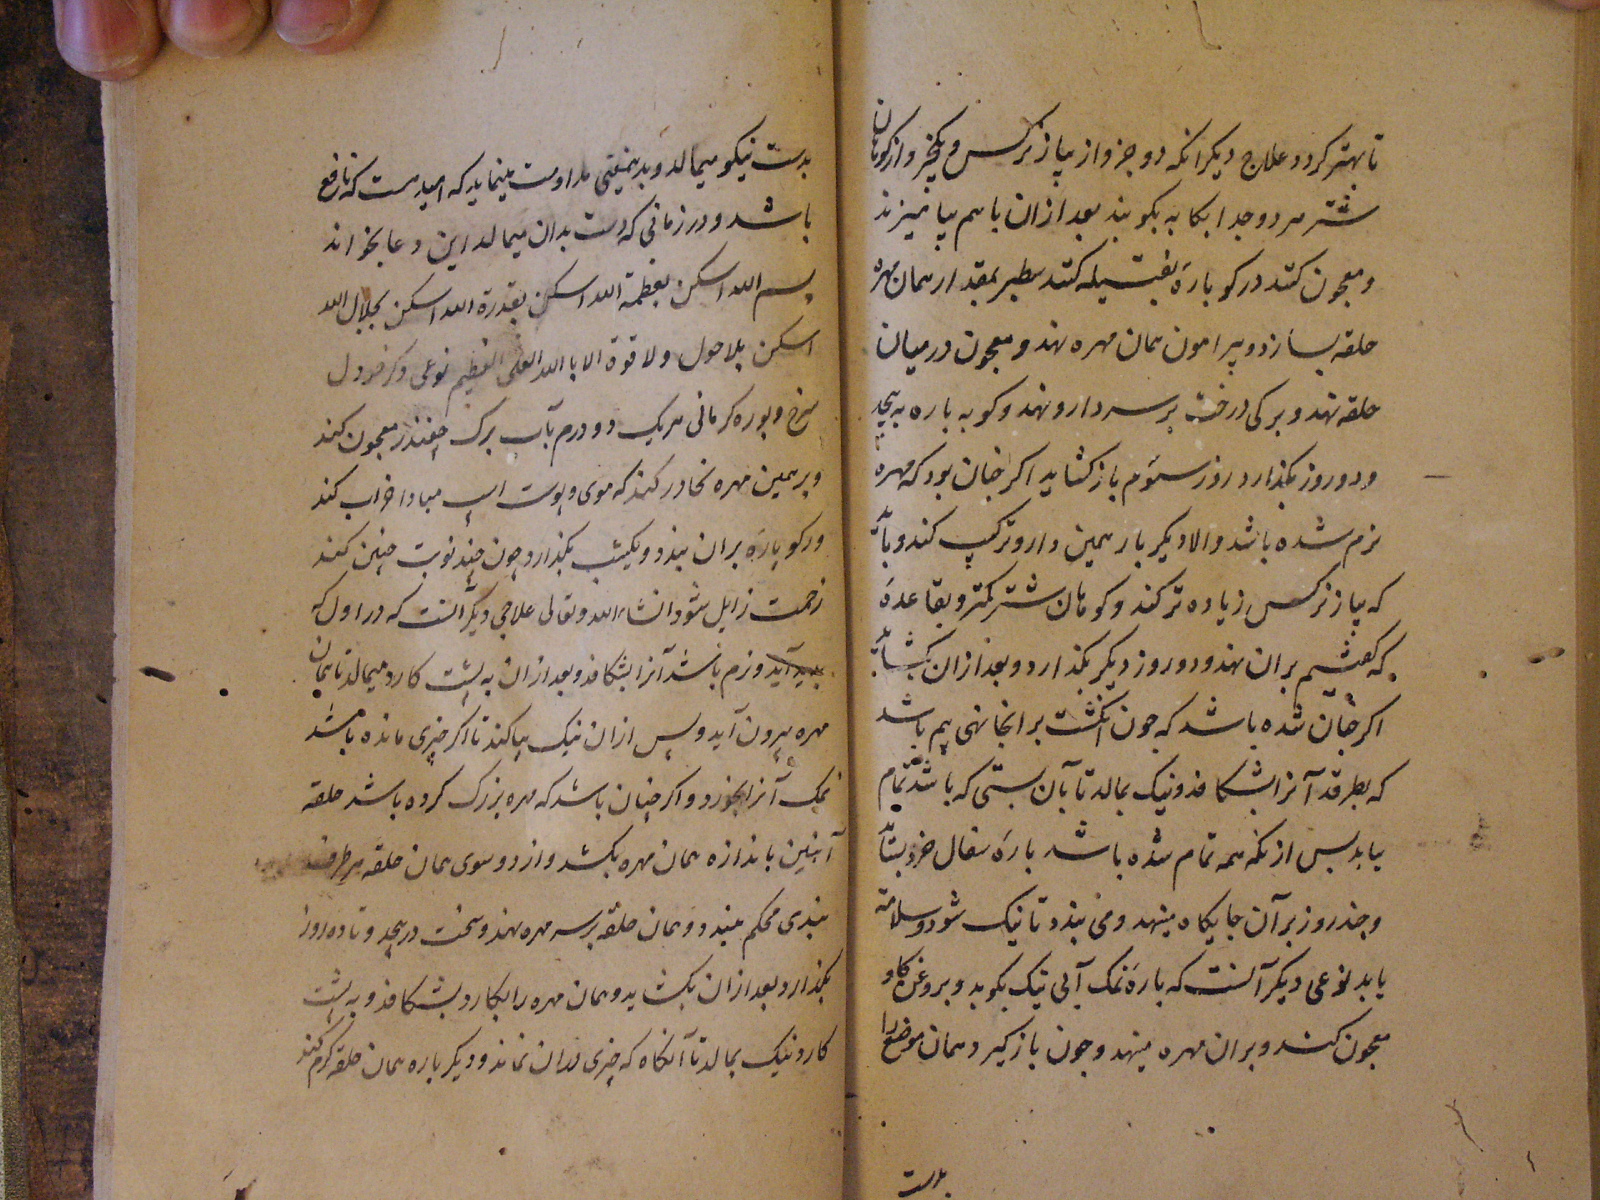 تا بهتر کردد علاج دیکر انکه دو جزو از پیاز نرکس و یکجزو از کوهان
شتر هر دو جدا بکوبند بعد ازان باهم بیامیزند
و معجون کنند در کو بارهٔ بفتیله کنند سطبر بمقدار همان مهره
حلقه بسازد و پیرامون همان مهره نهد و معجون درمیان
حلقه نهد و برکی درخت بر سر دارو نهد و کو به باره به پیچد
و دو روز بکذارد روز سئوم باز کشاید اکر خبان بود که مهره
نرم شده باشد والا دیکر بار همین دارو ترکیب کند و باید
که پیاز نرکس زیاده تر کند و کوهان شتر کمتر و بقاعدهٔ
که کفتیم بران نهد و دو روز دیکر بکذارد و بعد ازان بکشاید
اکر خبان شده باشد که جون انکشت بر انجا نهی پیم باشد
که بطرقد آنرا بشکافد و نیک بمالد تا بآن بستی که باشد تمام
بیابد بس ازنکه همه تمام شده باشد بارهٔ سفال خرد بستاند
و جند روز بر آن جایکاه مینهد و می بندد تا نیک شود و سلامت
یابد نوعی دیکر آنست که بارهٔ نمک آبی نیک بکوبد و بروغن کاو
معجون کند و بران مهره مینهد و جون باز کیرد همان موضع را
بدست
بدست نیکو میمالد و بدینمعنی مداومت مینماید که امید هست که نافع
باشد و در زمانی که دست بدان میمالد این دعا بخواند
بسم الله اسکن بعظمة الله اسکن بقدرة الله اسکن بجلال الله
اسکن بلا حول ولا قوة الا بالله العلی العظیم نوعی دکر خردل
سرخ و بوره کرمانی هر یک دو درم بآب برک چغندر معجون کنند
و بر همین مهره نحادر کنند که موی و پوست اسپ مبادا خراب کند
و رکو بارهٔ بران بندد و یکشب بکذارد چون چند نوبت چنین کنند
زحمت زایل شود انشاءالله و تعالی علاجی دیکر انست که در اول که
پدید آید و نرم باشد آنرا بشکافد و بعد ازان به پشت کارد میمالد تا همان
مهره بیرون آید و پس ازان نیک پاکند تا اکر چیزی مانده باشد
نمک آنرا بخورد و اکر چنان باشد که مهره بزرک کرده باشد حلقه
آهنین باندازه همان مهره بکشد و از دو سوی همان حلقه هر طرف
بندی محکم ببندد و همان حلقه بر سر مهره نهد و سخت در پیچد و تا ده روز
بکذارد بعد ازان بکشاید و همان مهره را بکارد بشکافد و به پشت
کارد نیک بمالد تا آنکاه که چیزی دران نماند و دیکر باره همان حلقه کرم کند